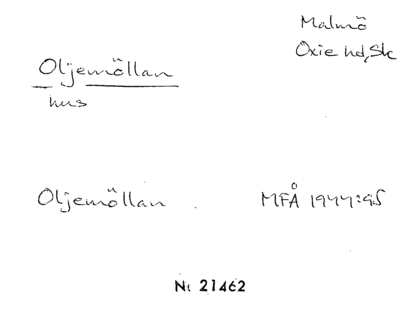 Malmö
Oxie hd, Sk
Oljemöllan
hus
Oljemöllan
MFÅ 1944:95
Nr 21462